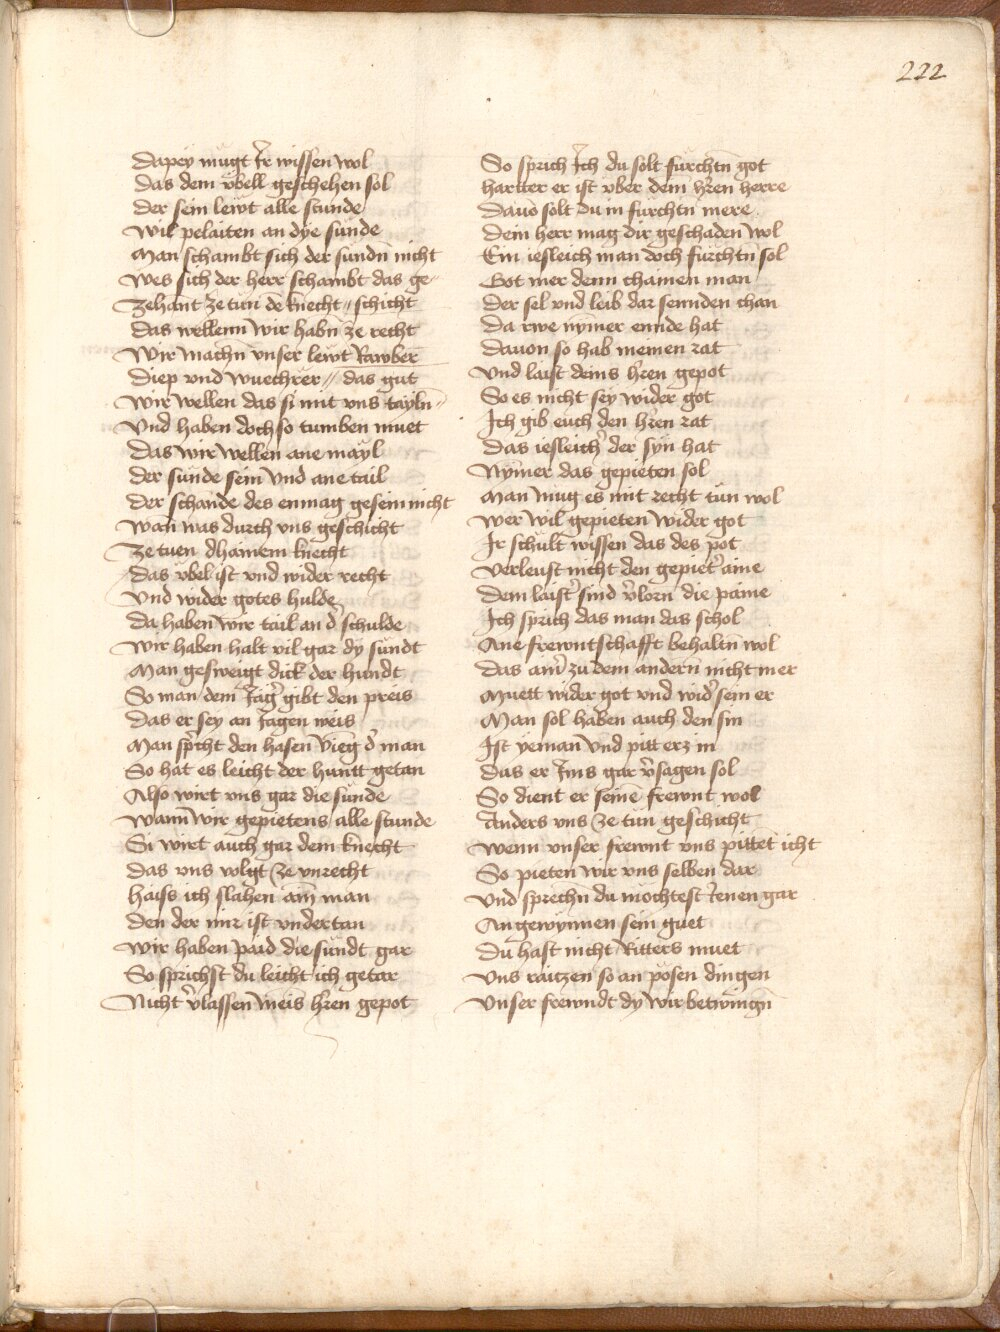 222
Dapey mugt Ir wissen wol
Das dem vbell geschehen sol
Der sein lewt alle stunde
Wil pelaiten an dye sunde
Man schambt sich der sundn̄ nicht
Wes sich der herr schambt das ge⸗
Zehant ze tun de knecht // schicht
Das wellenn wir habn̄ ze recht
Wir machn̄ vnser lewt Rawber
Diep vnd wuechrer // das gut
Wir wellen das si mit vns tayln̄ //
Vnd haben doch so tumben muet
Das wir wellen ane mayl
Der sunde sein Vnd ane tail
Der schande des enmag gesein nicht
Wan̄ was durch vns geschicht
Ze tuen dhainem knecht
Das vbel ist vnd wider recht
Vnd wider gotes hulde
Da haben wir tail an d̓ schulde
Wir haben halt vil gar dy sundt
Man gesweigt dick der hundt
So man dem Jag̓ gibt den preis
Das er sey an Jagen weis
Man sp̓cht den hasen vieng d̓ man
So hat es leicht der huntt getan
Also wirt vns gar die sunde
Wann̄ wir gepietens alle stunde
Si wirt auch gar dem knecht
Das vns volgt ze vnrecht
Haiss ich slahen am̄ man
Den der mir ist vndertan
Wir haben paid die sundt gar
So sprichst du leicht ich getar
Nicht v̓lassen meis̄ h̓ren gepot
So sprich Ich du solt furchtn̄ got
hartter er ist vber dem h̓ren herre
Dauō solt du in furchtn̄ mere
Dein herr mag dir geschaden wol
Ein iesleich man doch furchtn̄ sol
Got mer denn chainen man
Der sel vnd leib dar sennden chan
Da rwe nym̄er ennde hat
Dauon so hab meinen rat
Vnd laist deins h̓ren gepot
So es nicht sey wider got
Ich gib euch den h̓ren rat
Das iesleich̓ der syn hat
Nym̄er das gepieten sol
Man mug es mit recht tun wol
Wer wil gepieten wider got
Ir schult wissen das des pot
Verleust nicht den gepiet̓ aine
Dem laist̓ sind v̓lorn die paine
Ich sprich das man das schol
Ane frewntschafft behaltn̄ wol
Das ain̓ zu dem andern nicht mer
Muett wider got vnd wid̓ sein er
Man sol haben auch den sin
Ist yeman Vnd pitt erz in
Das er Ims gar v̓sagen sol
So dient er seinē frewnt wol
Anders vns ze tun geschicht
Wenn vnser frewnt vns pittet icht
So pieten wir vns selben dar
Vnd sprechn̄ du mochtest Jenen gar
An gewynnen sein guet
Du hast nicht Ritters muet
Vns raitzen so an posen dingen
Vnser frewndt dy wir betwingn̄